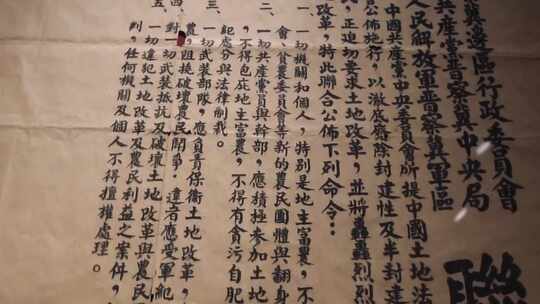 聯
冀邊區行政委員會
共產黨晉察冀中央局
人民解放軍晉察冀軍區
中國共產黨中央委員會所提中國土地法
公佈施行，以澈底廢除封建性及半封建
，正迫切要求土地改革，並將轟轟烈烈
改革，特此聯合公佈下列命令：
一、一切機關和個人，特別是地主富農，不
會、貧農委員會等新的農民團體與翻身
一切共產黨員與幹部，應積極參加土地
，不得包庇地主富農，不得有貪污自肥
記處分與法律制裁。
三、一切武裝部隊，應負責保衛土地改革，
農，阻撓破壞農民鬥爭。違者應受軍紀
四、對一切武裝抵抗及破壞土地改革與農民
一切違犯土地改革及農民利益之案件，
制，任何機關及個人不得擅權處理。